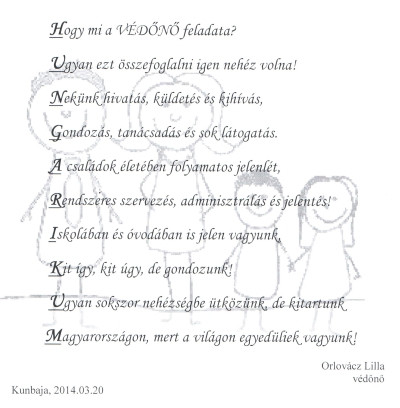 Hogy mi a VÉDŐNŐ feladata?
Ugyan ezt összefoglalni igen nehéz volna!
Nekünk hivatás, küldetés és kihívás,
Gondozás, tanácsadás és sok látogatás.
A családok életében folyamatos jelenlét,
Rendszeres szervezés, adminisztrálás és jelentés!
Iskolában és óvodában is jelen vagyunk,
Kit így, kit úgy, de gondozunk!
Ugyan sokszor nehézségbe ütközünk, de kitartunk
Magyarországon, mert a világon egyedüliek vagyunk!
Orlovácz Lilla
védőnő
Kunbaja, 2014.03.20